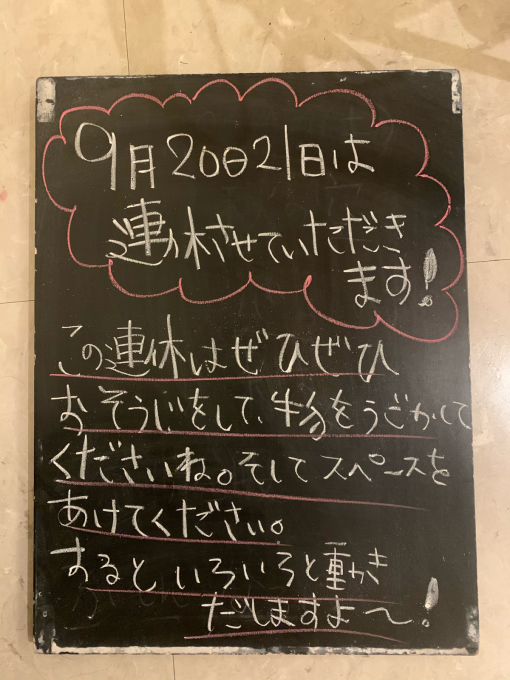 9月20日21日は
連休させていただき
ます!
この連休はぜひぜひ
おそうじをして、物をうごかして
くださいね。そしてスペースを
あけてください。
するといろいろと動き
だしますよ〜!